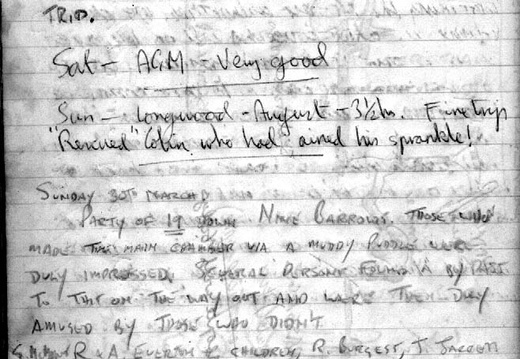 TRIP.
Sat - AGM - Very good
Sun - Longwood - August - 3½ hrs. Fine trip
"Rescued" Colin who had ained his sprankle!
SUNDAY 30TH MARCH
PARTY OF 19 DOWN NINE BARROWS. THOSE WHO
MADE THE MAIN CHAMBER VIA A MUDDY PUDDLE WERE
DULY IMPRESSED. SEVERAL PERSONS FOUND A BY PASS
TO THIS ON THE WAY OUT AND WERE THEN DULY
AMUSED BY THOSE WHO DIDN'T
R & A. EVERTON & CHILDREN, R. BURGESS, J.